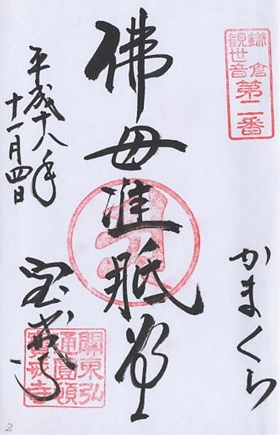 鎌倉
観世音
第二番
かまくら
佛母准胝
平成十八年
十一月四日
宝戒寺
關東弘
通圓頓
寶戒寺
2